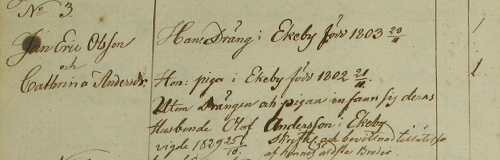 No 3.
Jan Eric Olsson
och
Cathrina Andersdr.
Han: Dräng i Ekeby född 1803 20/11
Hon: piga i Ekeby född 1802 21/11
Utom Drängen och pigan infann sig deras
Husbonde Olof Andersson i Ekeby
vigde 1829 25/10. och bevittnad
af hennes äldsta Broder
1